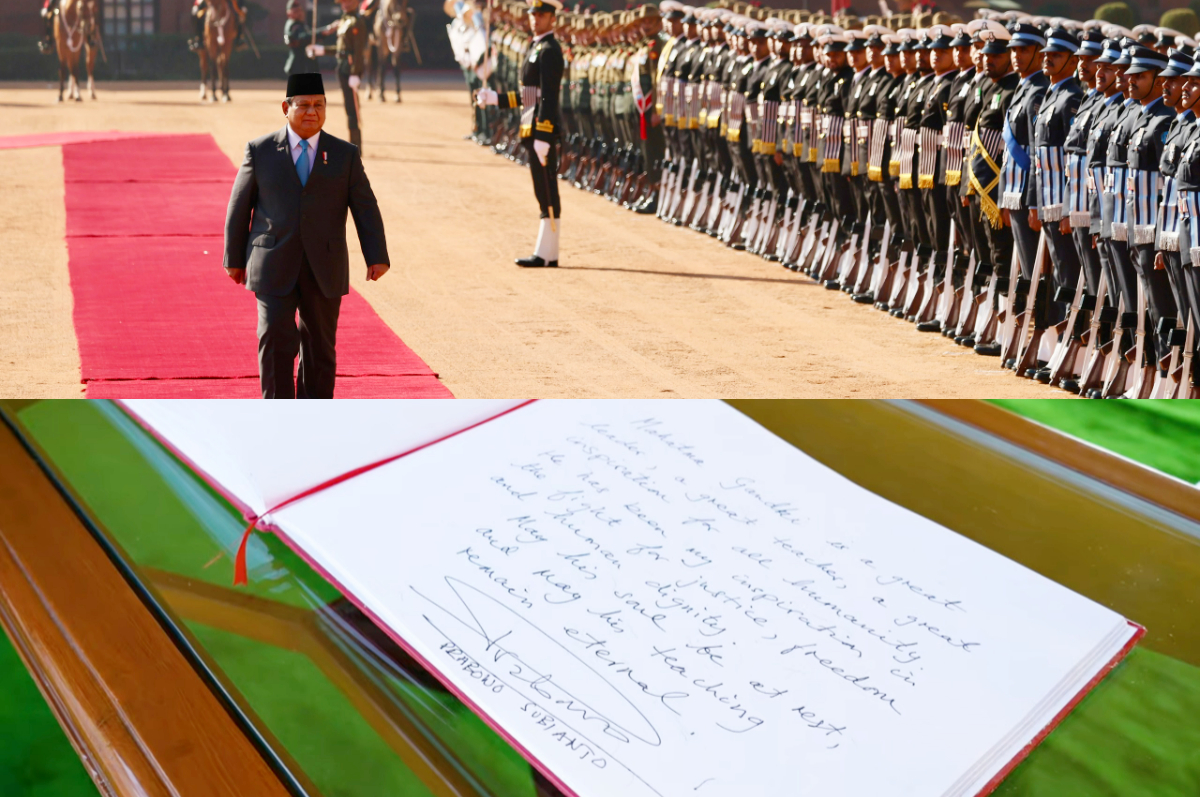 Mahatma Gandhi is a great
leader, a great teacher, a great
inspiration for all humanity.
He has been my inspiration in
the fight for justice, freedom
and human dignity.
May his soul be at rest,
and may his teaching
remain eternal.
PRABOWO SUBIANTO